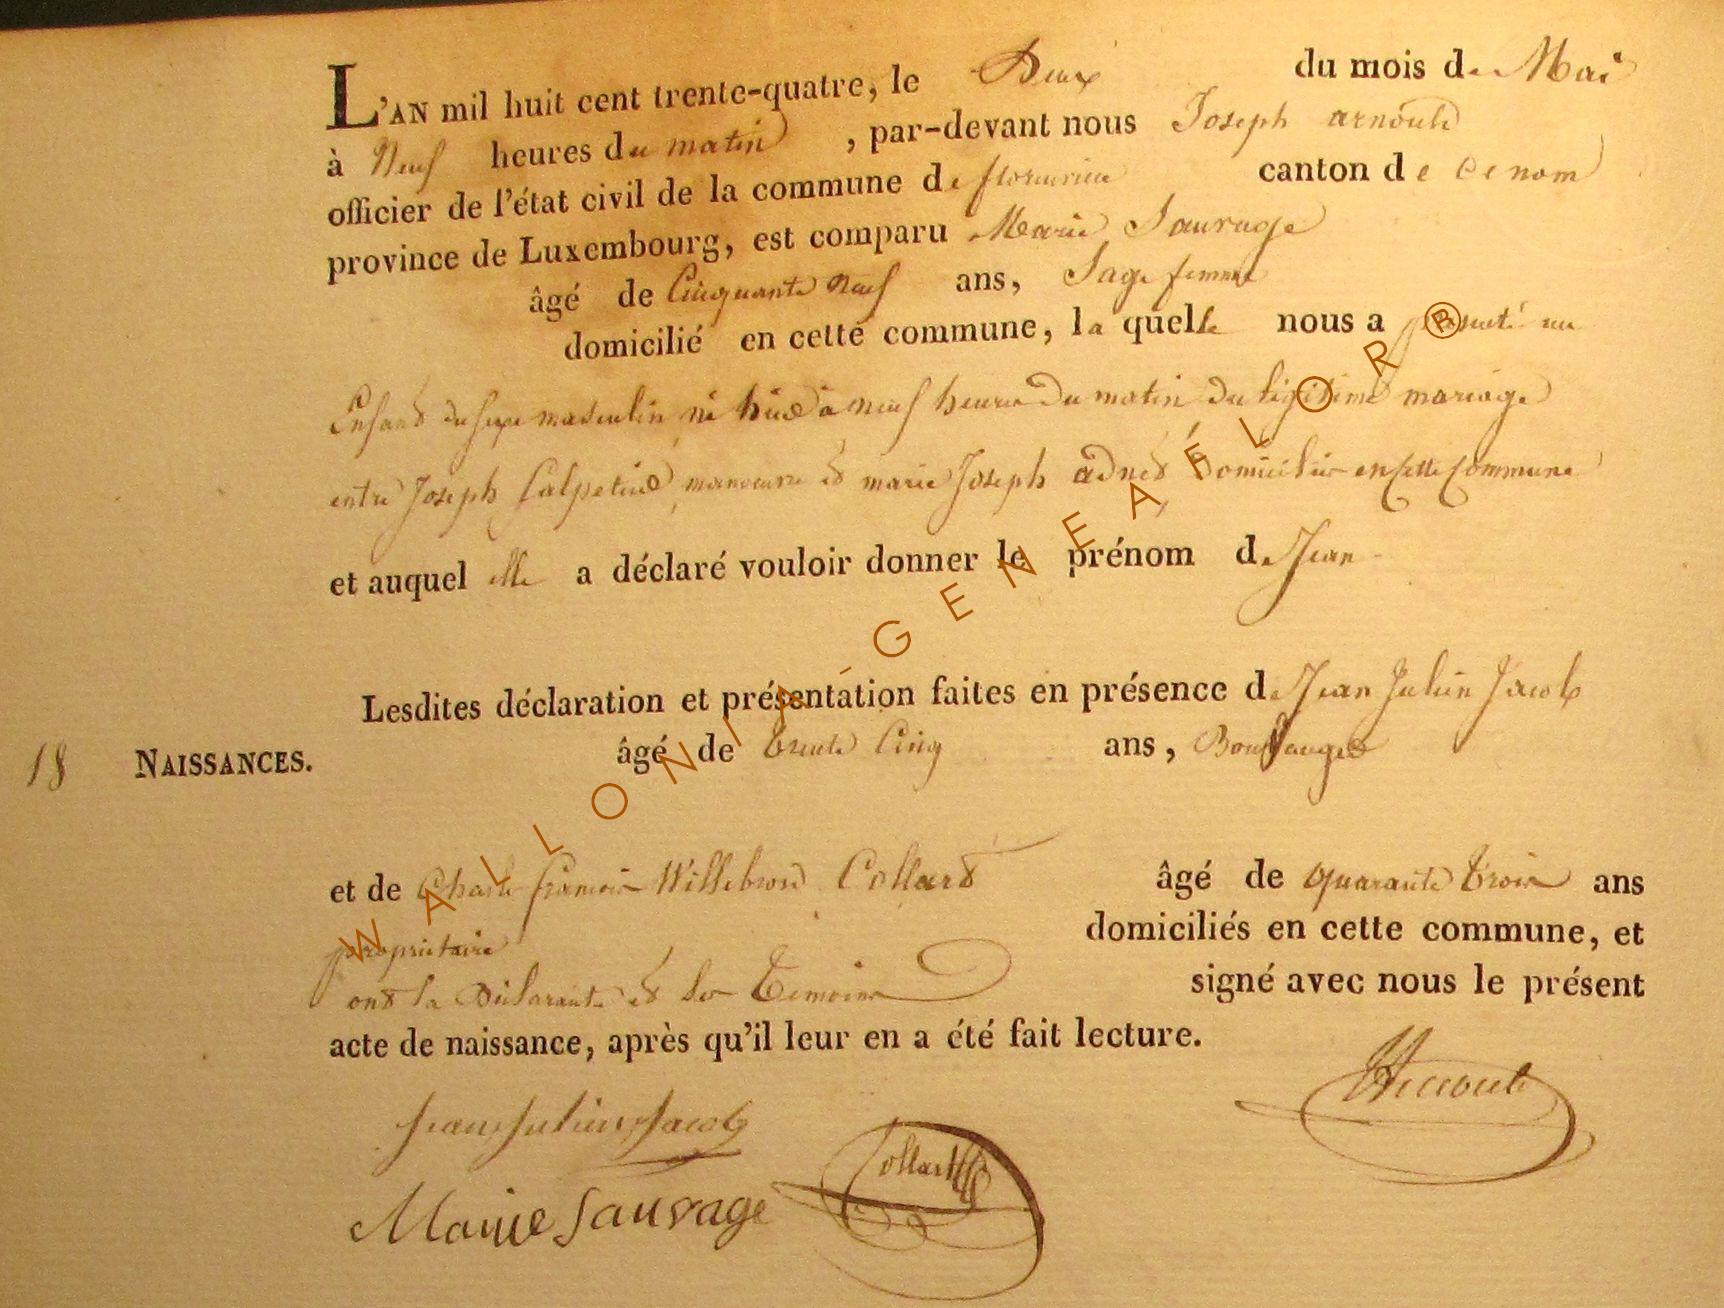 L'AN mil huit cent trente-quatre, le Deux du mois de Mai
à Neuf heures du matin, par-devant nous Joseph arnould
officier de l'état civil de la commune de florenville canton de ce nom
province de Luxembourg, est comparu Marie Sauvage
âgé de Cinquante neuf ans, Sage femme
domicilié en cette commune, la quelle nous a présenté un
Enfant du sexe masculin né hier à neuf heures du matin du légitime mariage
entre Joseph manoeuvre et marie Joseph domiciliés en cette Commune
et auquel elle a déclaré vouloir donner le prénom de Jean
Lesdites déclaration et présentation faites en présence de Jean Julien Jacob
âgé de trente Cinq ans, Boulanger
18 NAISSANCES.
et de Charles françois Willebrord Collard âgé de quarante trois ans
propriétaire domiciliés en cette commune, et
ont la Déclarante et les Temoins signé avec nous le présent
acte de naissance, après qu'il leur en a été fait lecture.
Jean Julien Jacob
Collard
Marie Sauvage
WALLONIA-GENEAFLOR®